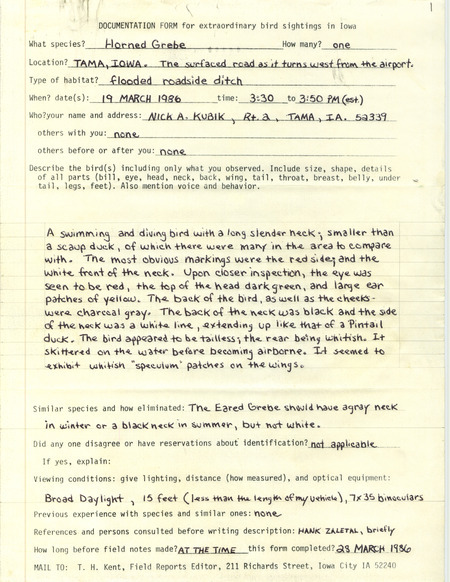 1
DOCUMENTATION FORM for extraordinary bird sightings in Iowa
What species? Horned Grebe How many? one
Location? TAMA, IOWA. The surfaced road as it turns west from the airport.
Type of habitat? flooded roadside ditch
When? date(s): 19 MARCH 1986 time: 3:30 to 3:50 PM (est.)
Who?your name and address: NICK A. KUBIK, Rt. 2, TAMA, IA. 52339
others with you: none
others before or after you: none
Describe the bird(s) including only what you observed. Include size, shape, details
of all parts (bill, eye, head, neck, back, wing, tail, throat, breast, belly, under
tail, legs, feet). Also mention voice and behavior.
A swimming and diving bird with a long slender neck; smaller than
a scaup duck, of which there were many in the area to compare
with. The most obvious markings were the red sides and the
white front of the neck. Upon closer inspection, the eye was
seen to be red, the top of the head dark green, and large ear
patches of yellow. The back of the bird, as well as the cheeks-
were charcoal gray. The back of the neck was black and the side
of the neck was a white line, extending up like that of a Pintail
duck. The bird appeared to be tailless; the rear being whitish. It
skittered on the water before becoming airborne. It seemed to
exhibit whitish "speculum" patches on the wings.
Similar species and how eliminated: The Eared Grebe should have a gray neck
in winter or a black neck in summer, but not white.
Did any one disagree or have reservations about identification? not applicable
If yes, explain:
Viewing conditions: give lighting, distance (how measured), and optical equipment:
Broad Daylight, 15 feet (less than the length of my vehicle), 7x35 binoculars
Previous experience with species and similar ones: none
References and persons consulted before writing description: HANK ZALETAL, briefly
How long before field notes made? AT THE TIME this form completed? 28 MARCH 1986
MAIL TO: T. H. Kent, Field Reports Editor, 211 Richards Street, Iowa City IA 52240